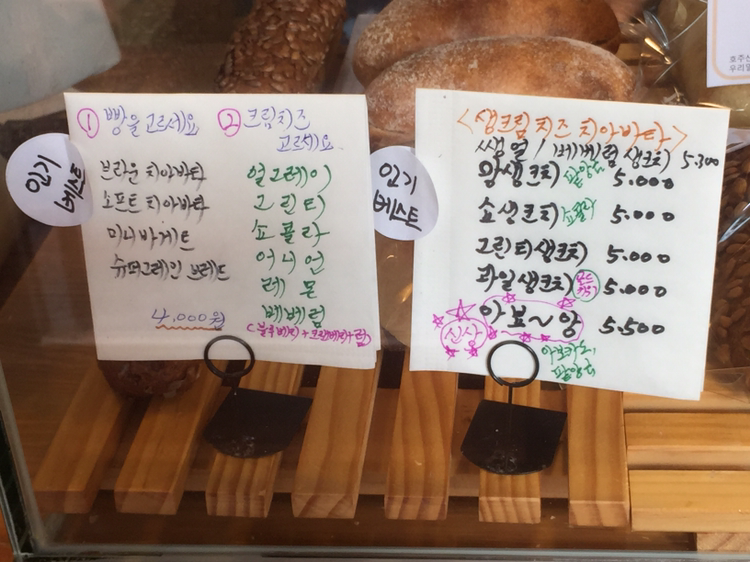 인기
베스트
① 빵을 고르세요
브라운 치아바타
소프트 치아바타
미니바게트
슈퍼그레인 브레드
4,000원
② 크림치즈
고르세요
얼그레이
그린티
쇼콜라
어니언
레몬
베베럼
(블루베리+크랜베리+럼)
인기
베스트
<생크림치즈 치아바타>
쌩얼 / 베베럼 생크치 5.300
앙생크치 팥앙금 5.000
쇼생크치 쇼콜라 5.000
그린티생크치 5.000
과일생크치 5.000
신상 아보~앙 5.500
아보카도,
팥앙금
호주산
우리밀